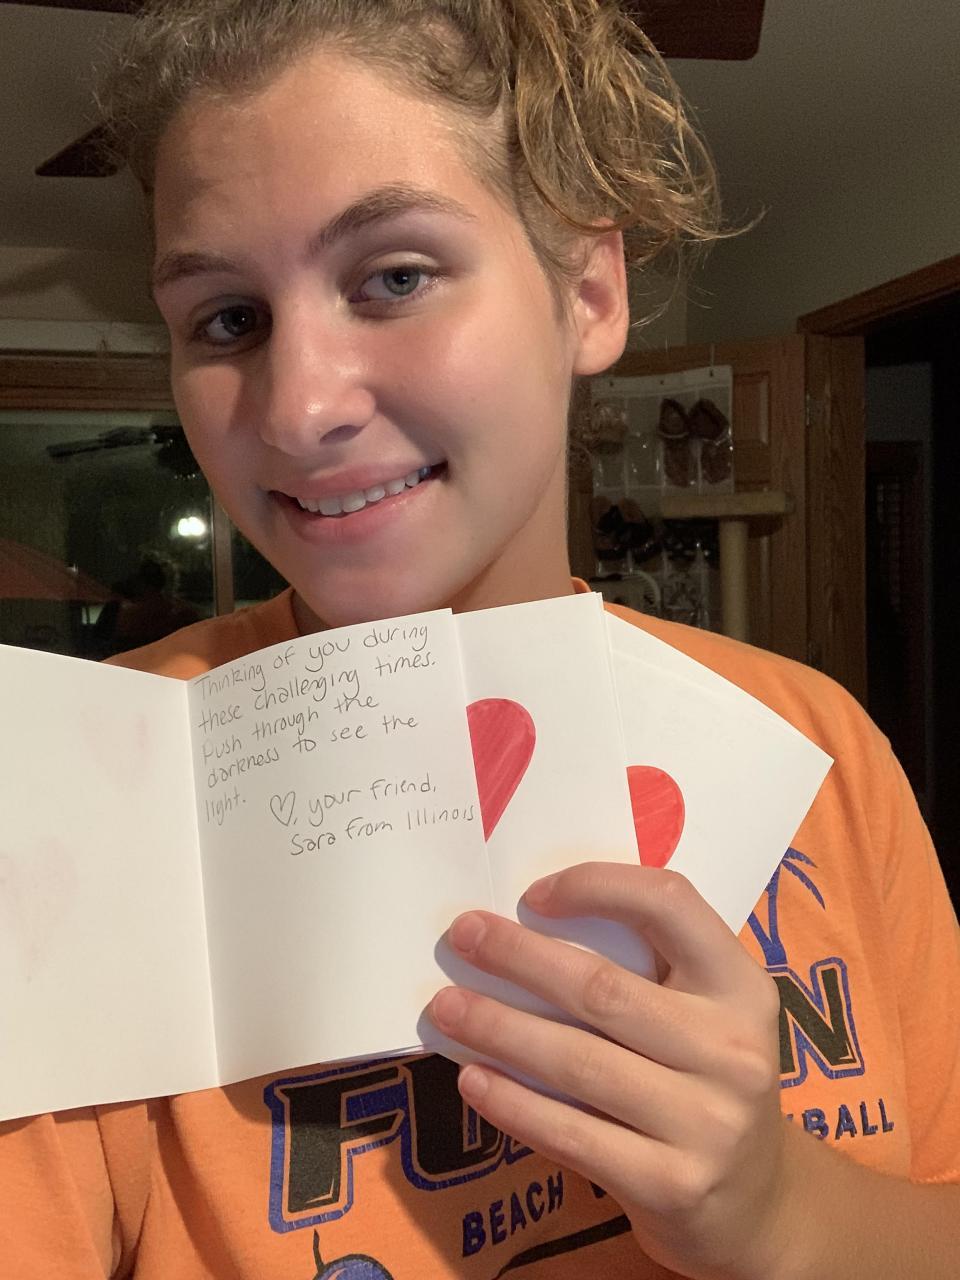 Thinking of you during
these challenging times.
Push through the
darkness to see the
light.
♡, your friend,
Sara from Illinois
FU
N
BEACH
BALL